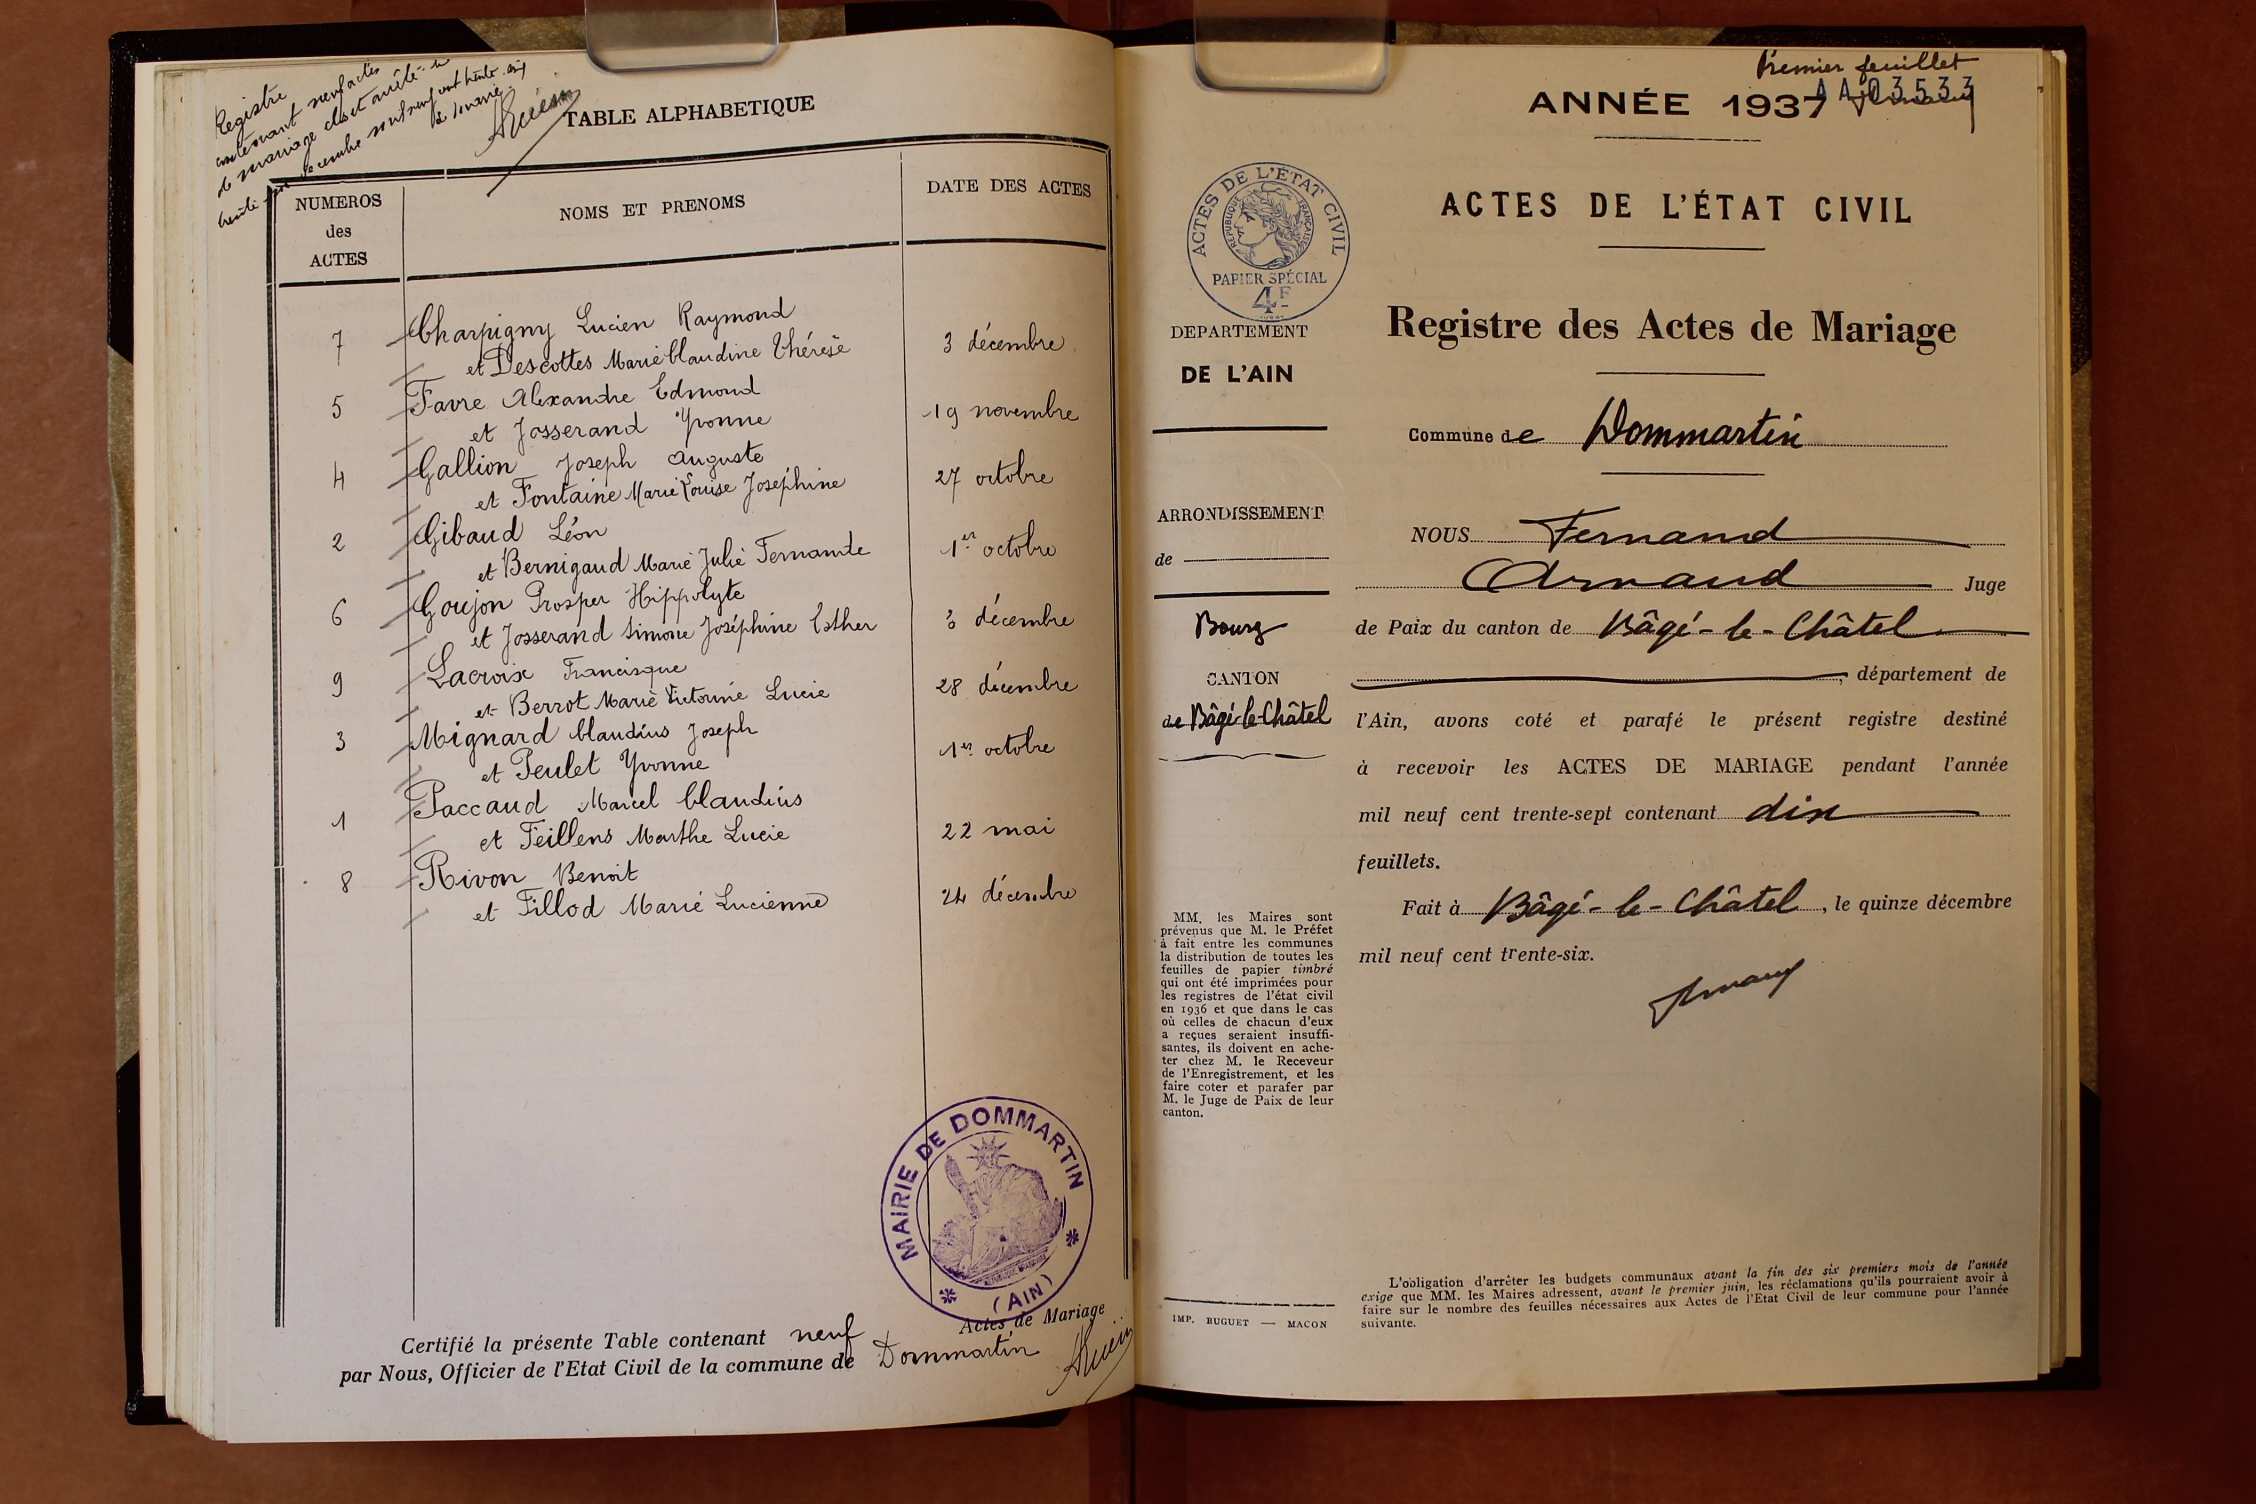 Registre
contenant neuf actes
de mariage clos et arrêté le
trente un décembre mil neuf cent trente cinq
le maire
TABLE ALPHABETIQUE
NUMEROS
des
ACTES
NOMS ET PRENOMS
DATE DES ACTES
7 Charpigny Lucien Raymond
et Descottes Marie Claudine Thérèse 3 décembre
5 Favre Alexandre Edmond
et Josserand Yvonne 19 novembre
4 Gallion Joseph Auguste
et Fontaine Marie Louise Joséphine 27 octobre
2 Gibaud Léon
et Bernigaud Marie Julie Fernande 1er octobre
6 Goujon Prosper Hippolyte
et Josserand Simone Joséphine Esther 3 décembre
9 Lacroix Francisque
et Berrot Marie Victorine Lucie 28 décembre
3 Mignard Claudius Joseph
et Peulet Yvonne 1er octobre
1 Paccaud Marcel Claudius
et Feillens Marthe Lucie 22 mai
8 Rivon Benoit
et Fillod Marie Lucienne 24 décembre
MAIRIE DE DOMMARTIN
(AIN)
Certifié la présente Table contenant neuf Actes de Mariage
par Nous, Officier de l'Etat Civil de la commune de Dommartin
Premier feuillet
AA03533
ANNÉE 1937
ACTES DE L'ÉTAT CIVIL
RÉPUBLIQUE FRANÇAISE
PAPIER SPÉCIAL
4F
ACTES DE L'ÉTAT CIVIL
Registre des Actes de Mariage
DEPARTEMENT
DE L'AIN
Commune de Dommartin
ARRONDISSEMENT
de
Bourg
CANTON
de Bâgé-le-Châtel
NOUS Fernand
Arnaud Juge
de Paix du canton de Bâgé-le-Châtel
, département de
l'Ain, avons coté et parafé le présent registre destiné
à recevoir les ACTES DE MARIAGE pendant l'année
mil neuf cent trente-sept contenant dix
feuillets.
Fait à Bâgé-le-Châtel, le quinze décembre
mil neuf cent trente-six.
Arnaud
MM. les Maires sont
prévenus que M. le Préfet
à fait entre les communes
la distribution de toutes les
feuilles de papier timbré
qui ont été imprimées pour
les registres de l'état civil
en 1936 et que dans le cas
où celles de chacun d'eux
a reçues seraient insuffi-
santes, ils doivent en ache-
ter chez M. le Receveur
de l'Enregistrement, et les
faire coter et parafer par
M. le Juge de Paix de leur
canton.
IMP. BUGUET — MACON
L'obligation d'arrêter les budgets communaux avant la fin des six premiers mois de l'année
exige que MM. les Maires adressent, avant le premier juin, les réclamations qu'ils pourraient avoir à
faire sur le nombre des feuilles nécessaires aux Actes de l'Etat Civil de leur commune pour l'année
suivante.